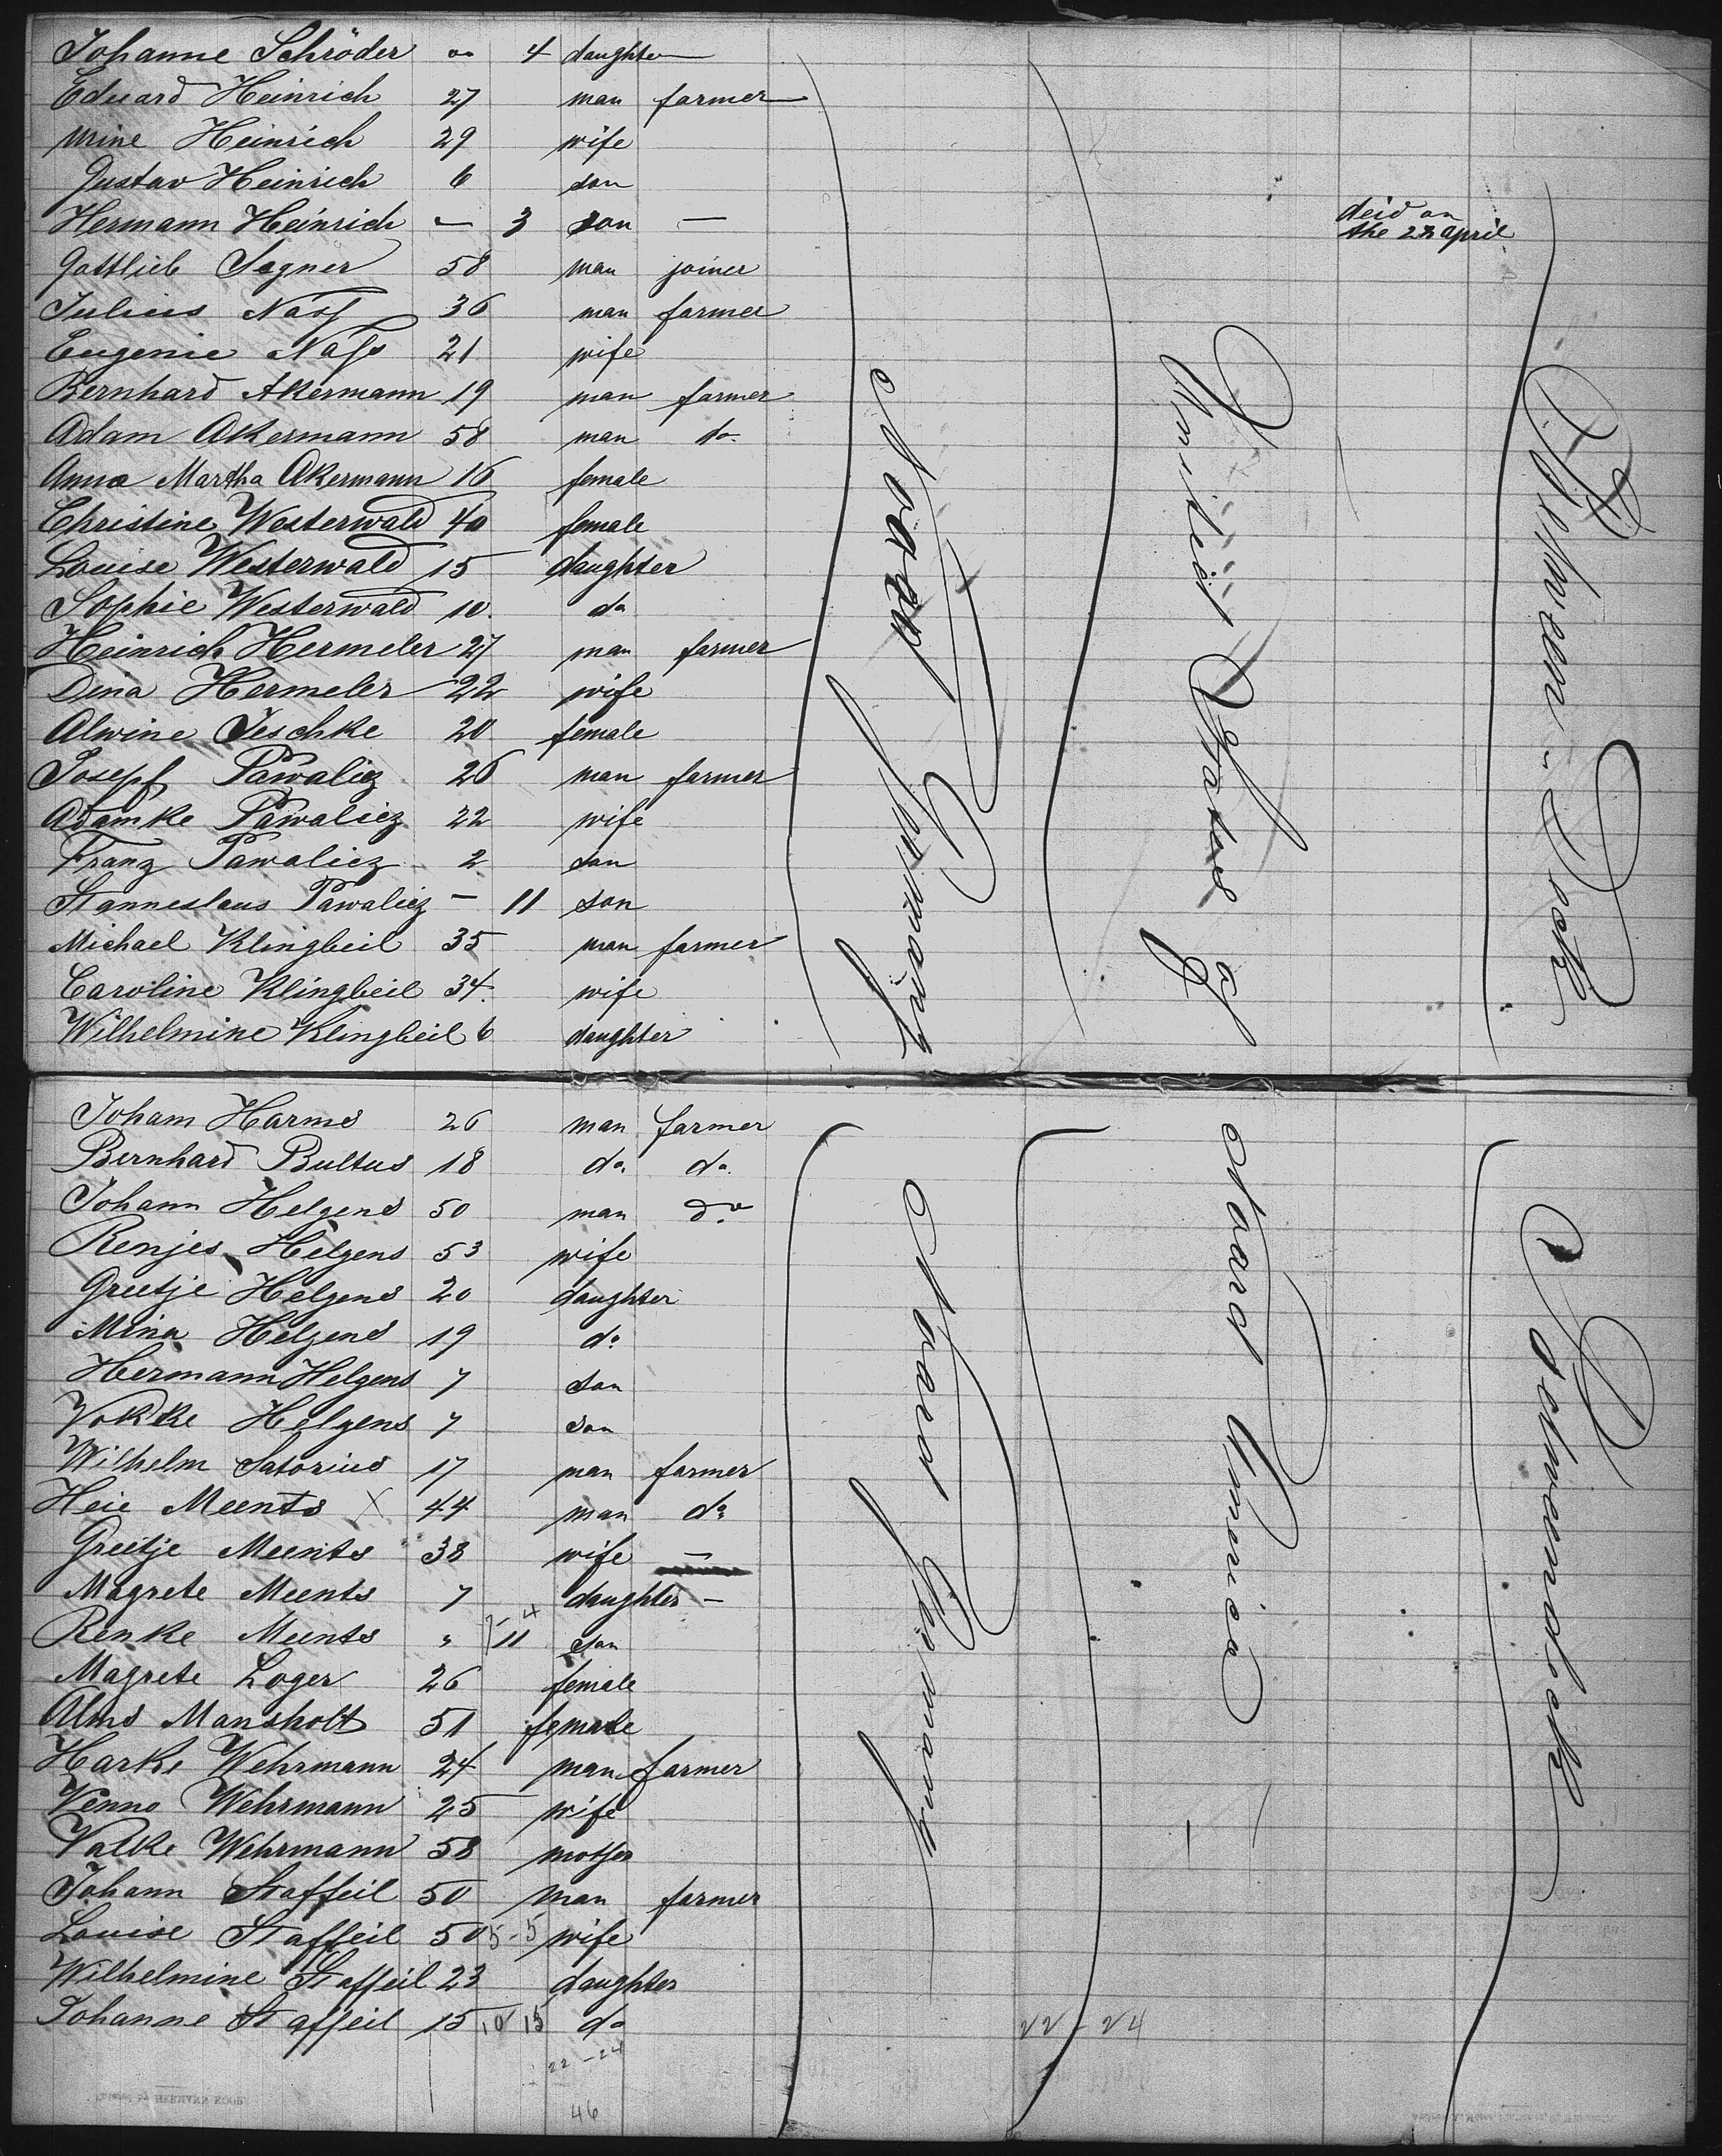 Johanne Schröder " 4 daughter
Eduard Heinrich 27 man farmer
Mine Heinrich 29 wife
Gustav Heinrich 6 son
Hermann Heinrich — 3 son — deid on
the 22 april
Gottlieb Sagner 58 man joiner
Julius Näss 36 man farmer
Eugenie Näss 21 wife
Bernhard Akermann 19 man farmer
Adam Akermann 58 man do.
Anna Martha Akermann 16 female
Christine Westerwald 40 female
Louise Westerwald 15 daughter
Sophie Westerwald 10. do
Heinrich Hermeler 27 man farmer
Dina Hermeler 22 wife
Alwine Jeschke 20 female
Josepf Pawaliez 26 man farmer
Adamke Pawaliez 22 wife
Franz Pawaliez 2 son
Stanneslaus Pawaliez — 11 son
Michael Klingbeil 35 man farmer
Caroline Klingbeil 34. wife
Wilhelmine Klingbeil 6 daughter
Germany
United States of
Joham Harms 26 man farmer
Bernhard Bultus 18 do. do.
Johann Helgens 50 man do
Renjes Helgens 53 wife
Greetje Helgens 20 daughter
Mina Helgens 19 do
Hermann Helgens 7 son
Vokke Helgens 7 son
Wilhelm Satorius 17 man farmer
Heie Meents X 44 man do
Greetje Meents 38 wife —
Magrete Meents 7 daughter —
Renke Meents " 11 son
Magrete Loger 26 female
Alms Mansholt 51 female
Harke Wehrmann 24 man farmer
Wenno Wehrmann 25 wife
Valke Wehrmann 58 mother
Johann Staffeil 50 man farmer
Louise Staffeil 50 5-5 wife
Wilhelmine Staffeil 23 daughter
Johanne Staffeil 15 10 15 do
22 - 24
22 - 24
46
Germany
North America